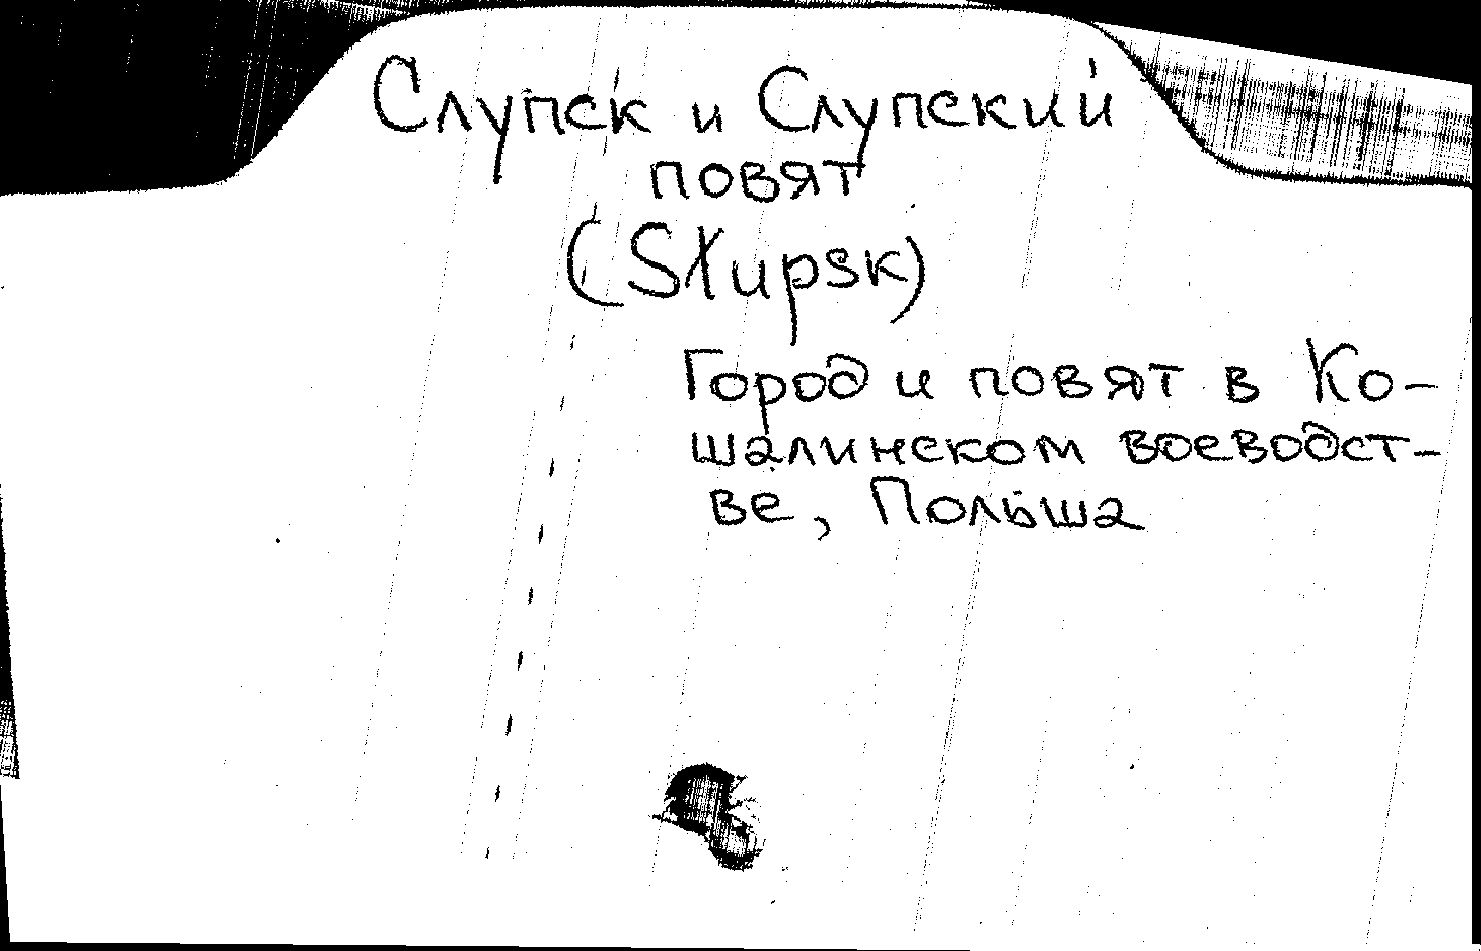 Слупск и Слупский
повят
(Słupsk)
Город и повят в Ко-
шалинском воеводст-
ве, Польша